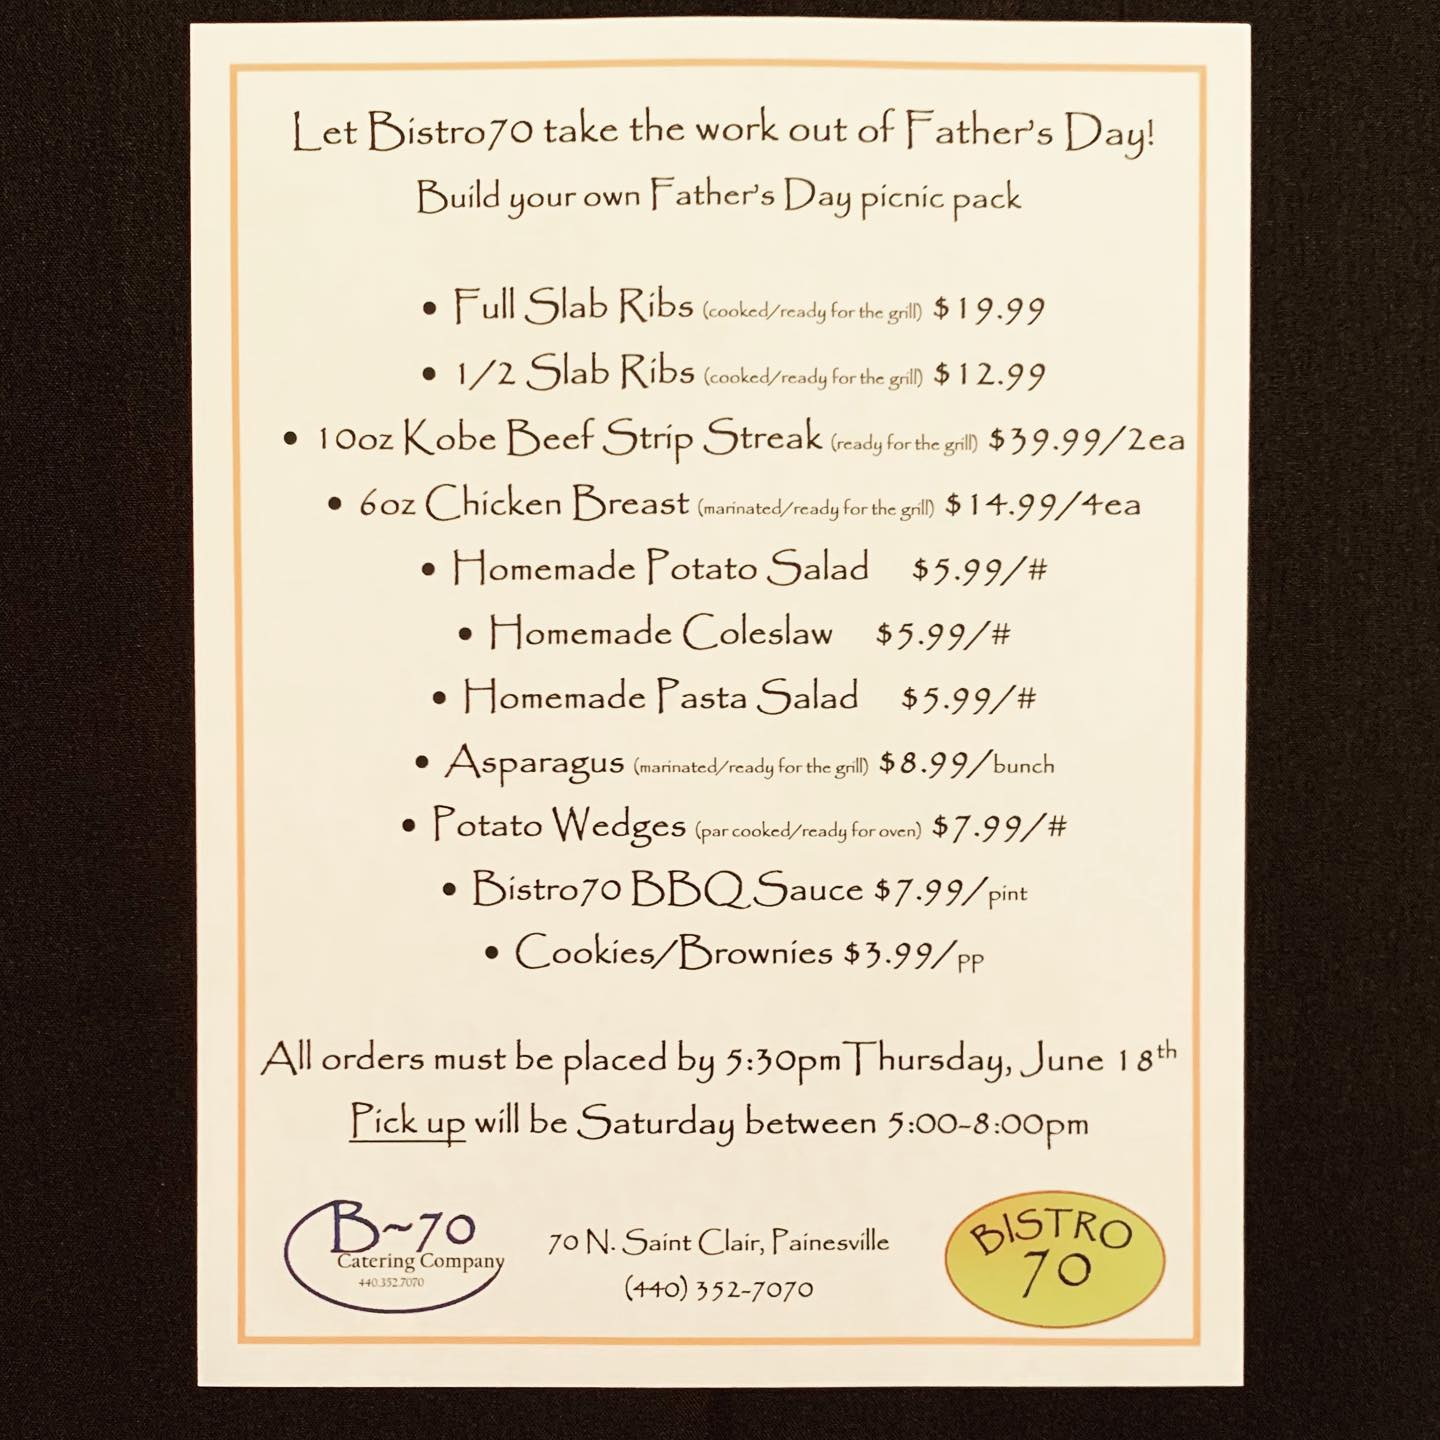 Let Bistro70 take the work out of Father's Day!
Build your own Father's Day picnic pack
• Full Slab Ribs (cooked/ready for the grill) $19.99
• 1/2 Slab Ribs (cooked/ready for the grill) $12.99
• 10oz Kobe Beef Strip Streak (ready for the grill) $39.99/2ea
• 6oz Chicken Breast (marinated/ready for the grill) $14.99/4ea
• Homemade Potato Salad $5.99/#
• Homemade Coleslaw $5.99/#
• Homemade Pasta Salad $5.99/#
• Asparagus (marinated/ready for the grill) $8.99/bunch
• Potato Wedges (par cooked/ready for oven) $7.99/#
• Bistro70 BBQ Sauce $7.99/pint
• Cookies/Brownies $3.99/pp
All orders must be placed by 5:30pm Thursday, June 18th
Pick up will be Saturday between 5:00-8:00pm
B~70
Catering Company
440.352.7070
70 N. Saint Clair, Painesville
(440) 352-7070
BISTRO
70